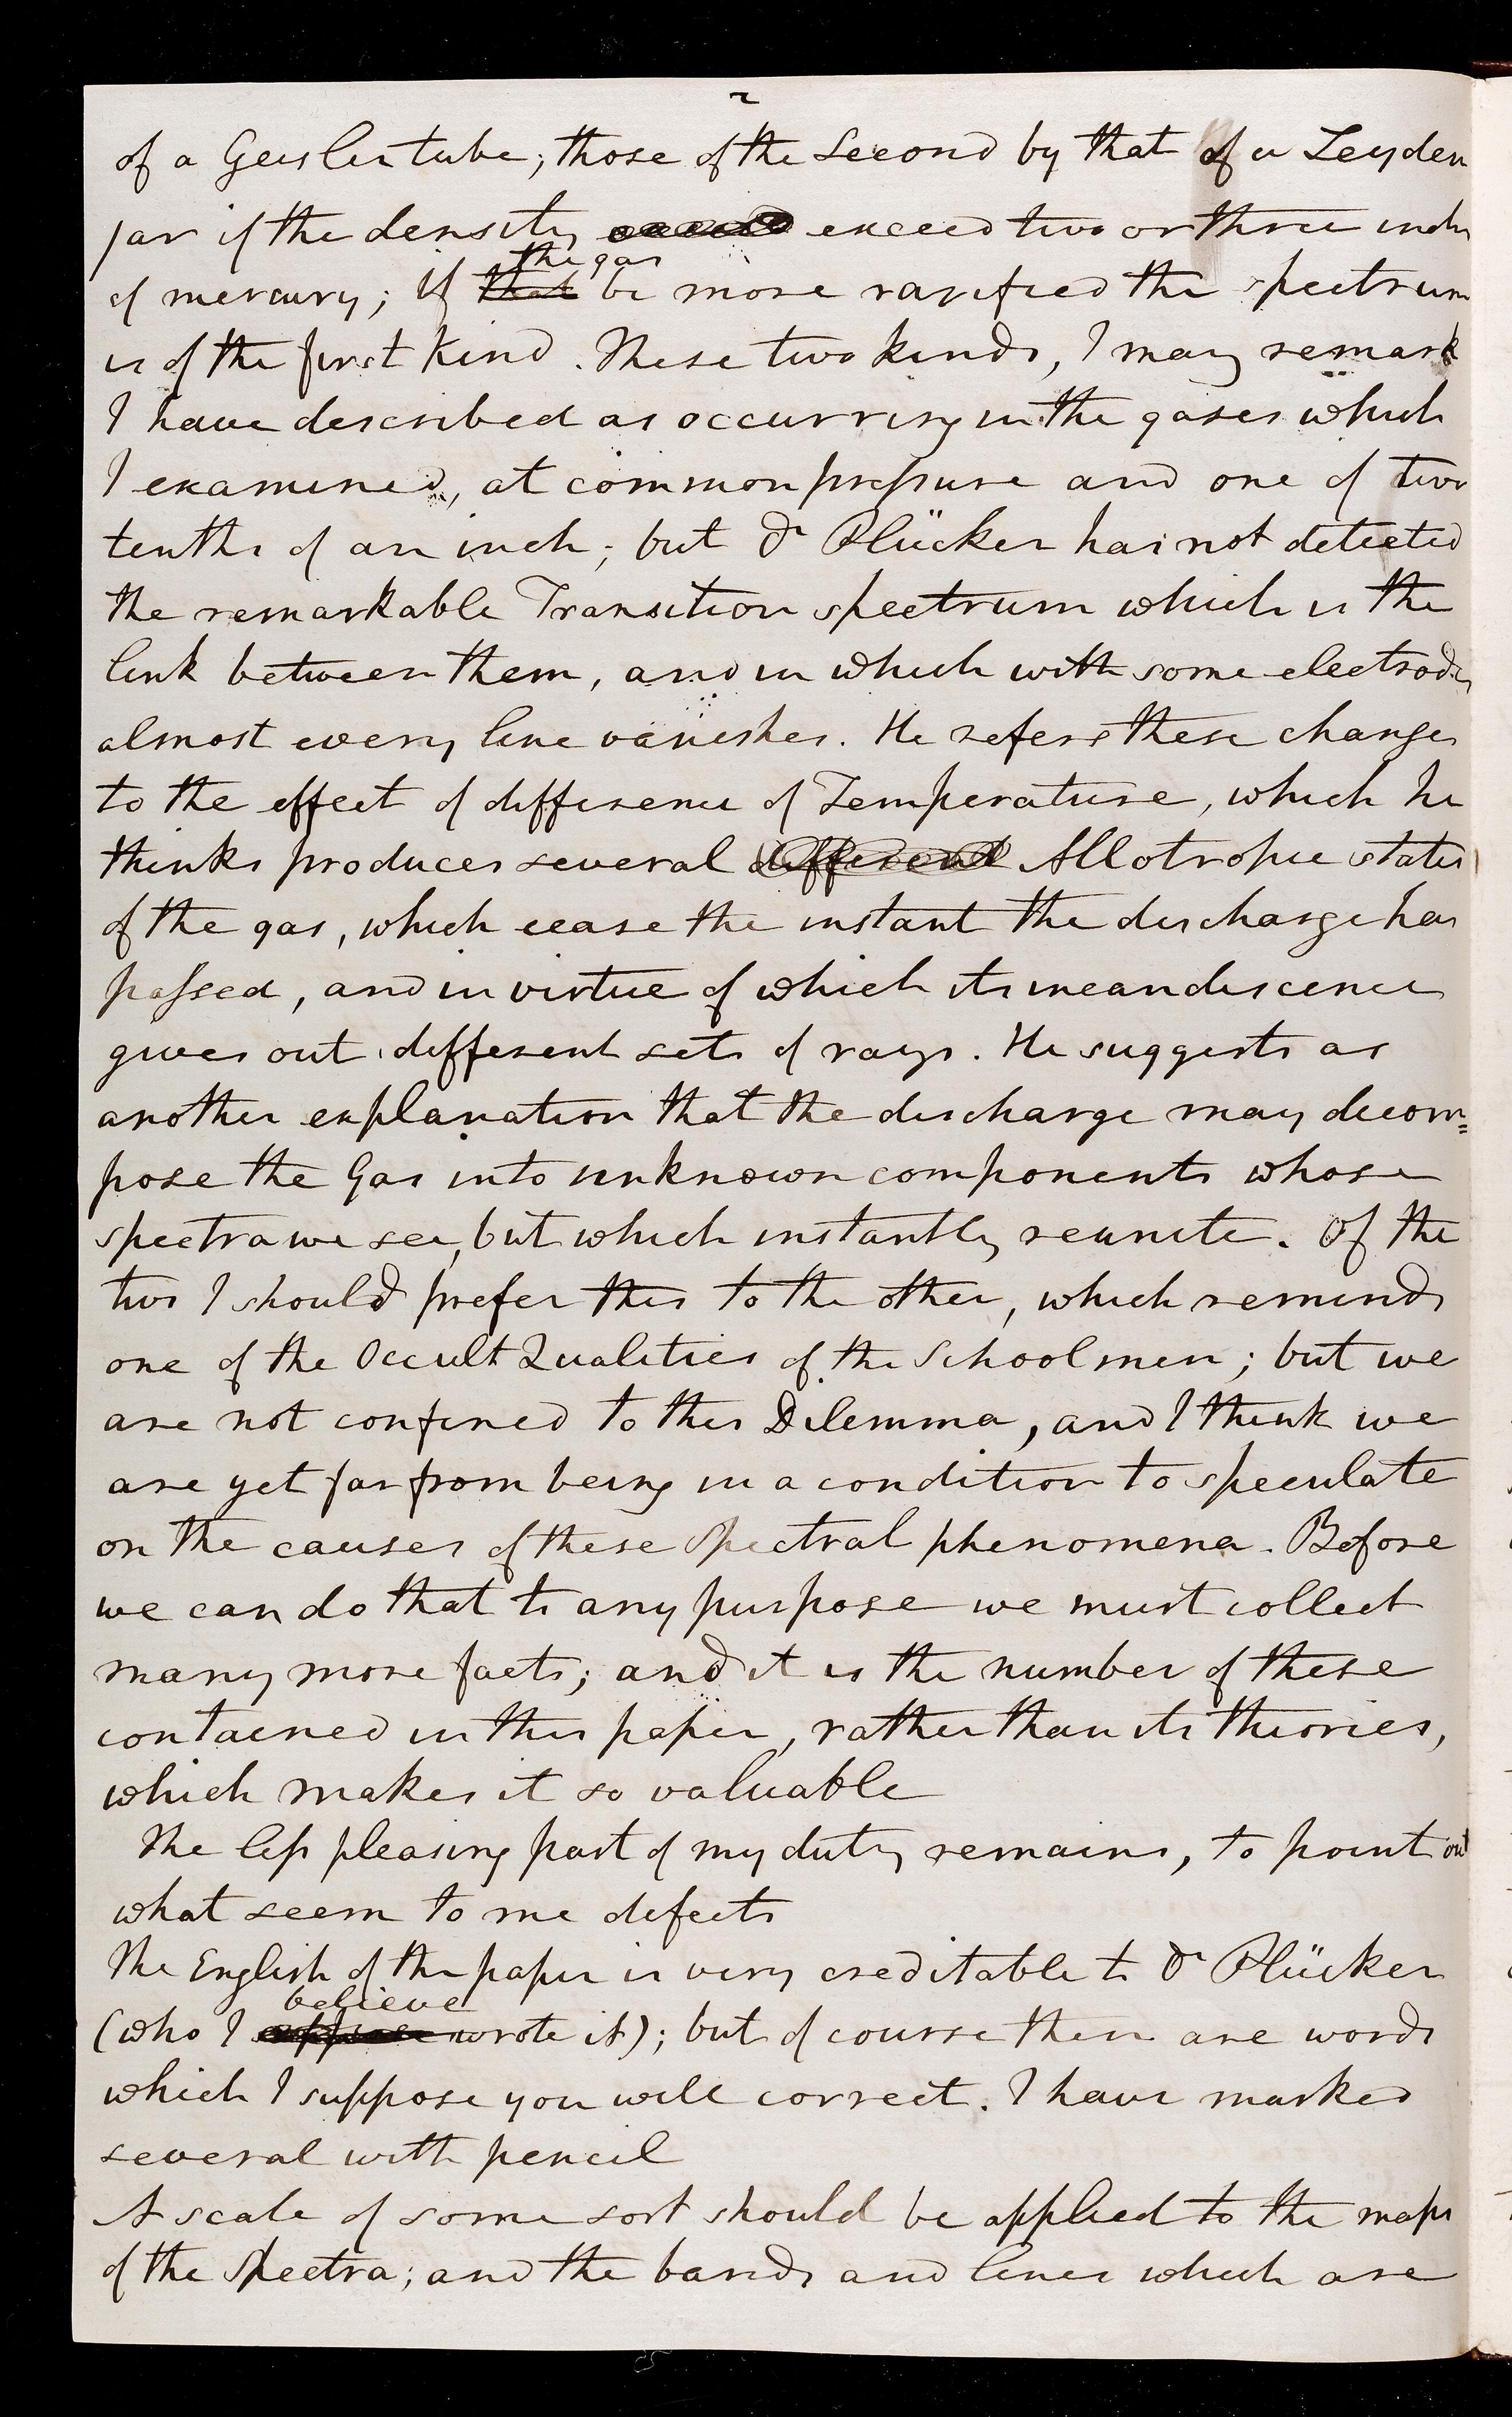 2
of a Geisler tube; those of the second by that of a Leyden
jar if the density exceed two or three inch
of mercury; if that the gas be more rarefied the spectrum
is of the first kind. These two kinds, I may remark
I have described as occurring in the gases which
I examined, at common pressure and one of two
tenths of an inch; but Dr Plücker has not detected
the remarkable Transition spectrum which is the
link between them, and in which with some electrodes
almost every line vanishes. He refers these changes
to the effect of difference of Temperature, which he
thinks produces several different Allotropic states
of the gas, which cease the instant the discharge has
passed, and in virtue of which its incandescence
gives out different sets of rays. He suggests as
another explanation that the discharge may decom=
pose the Gas into unknown components whose
spectra we see, but which instantly reunite. Of the
two I should prefer this to the other, which reminds
one of the Occult Qualities of the Schoolmen; but we
are not confined to this Dilemma, and I think we
are yet far from being in a condition to speculate
on the causes of these Spectral phenomena. Before
we can do that to any purpose we must collect
many more facts; and it is the number of these
contained in this paper, rather than its theories,
which makes it so valuable
The less pleasing part of my duty remains, to point out
what seem to me defects
The English of the paper is very creditable to Dr Plücker
(who I suppose believe wrote it); but of course there are words
which I suppose you will correct. I have marked
several with pencil
A scale of some sort should be applied to the maps
of the Spectra; and the bands and lines which are